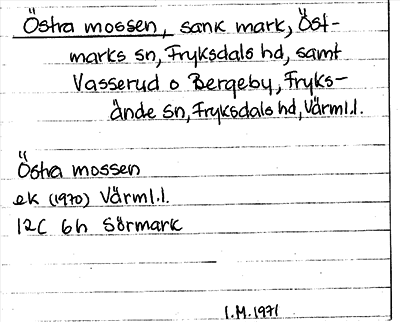 Östra mossen, sank mark, Öst-
marks sn, Fryksdals hd, samt
Vasserud o Bergeby, Fryks-
ände sn, Fryksdals hd, Värml.l.
Östra mossen
ek (1970) Värml.l.
12C 6h Sörmark
I.M.1971